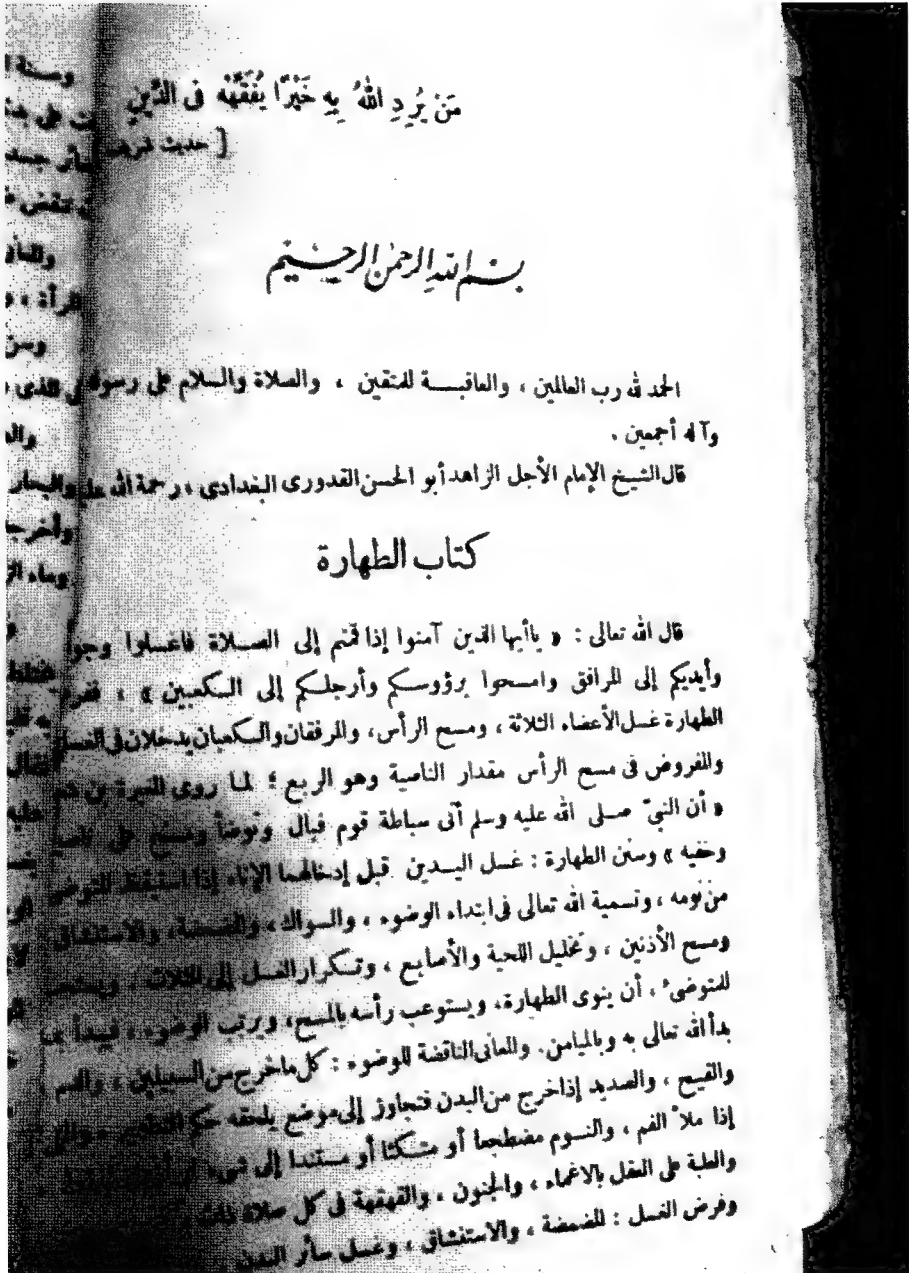 مَنْ يُرِدِ اللهُ بِهِ خَيْرًا يُفَقِّهْهُ فى الدِّينِ
[ حديث شريف ]
بسم الله الرحمن الرحيم
الحمد لله رب العالمين ، والعاقبــة للمتقين ، والصلاة والسلام على رسوله
وآله أجمعين .
قال الشيخ الإمام الأجل الزاهد أبو الحسن القدورى البغدادى ، رحمة الله
كتاب الطهارة
قال الله تعالى : « ياأيها الذين آمنوا إذا قمتم إلى الصــلاة فاغسلوا
وأيديكم إلى المرافق وامسحوا برؤوسكم وأرجلكم إلى الكعبين » ،
الطهارة غسل الأعضاء الثلاثة ، ومسح الرأس ، والمرفقان والكعبان يدخلان فى الغسل
والمفروض فى مسح الرأس مقدار الناصية وهو الربع ؛ لما روى المغيرة بن
« أن النبىّ صلى الله عليه وسلم أتى سباطة قوم فبال وتوضأ ومسح على
وخفيه » وسنن الطهارة : غسل اليــدين قبل إدخالهما الإناء إذا استيقظ المتوضئ
من نومه ، وتسمية الله تعالى فى ابتداء الوضوء ، والسواك ، والمضمضة ، والاستنشاق
ومسح الأذنين ، وتخليل اللحية والأصابع ، وتكرار الغسل إلى الثلاث ،
للمتوضىء ، أن ينوى الطهارة ، ويستوعب رأسه بالمسح ، ويرتب الوضوء ، فيبدأ بما
بدأ الله تعالى به وبالميامن . والمعانى الناقضة للوضوء : كل ماخرج من السبيلين ، والدم
والقيح ، والصديد إذا خرج من البدن فتجاوز إلى موضع يلحقه حكم التطهير
إذا ملأ الفم ، والنــوم مضطجعا أو متكئا أو مستندا إلى شىء
والغلبة على العقل بالاغماء ، والجنون ، والقهقهة فى كل صلاة ذات
وفرض الغسل : المضمضة ، والاستنشاق ، وغسل سائر البدن